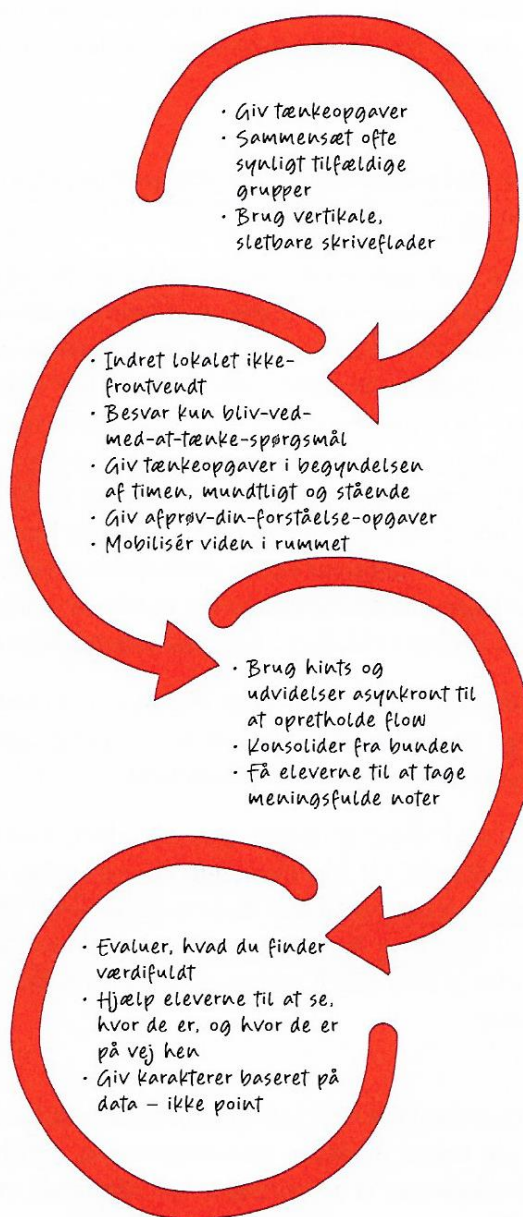 · Giv tænkeopgaver
· Sammensæt ofte
synligt tilfældige
grupper
· Brug vertikale,
sletbare skriveflader
· Indret lokalet ikke-
frontvendt
· Besvar kun bliv-ved-
med-at-tænke-spørgsmål
· Giv tænkeopgaver i begyndelsen
af timen, mundtligt og stående
· Giv afprøv-din-forståelse-opgaver
· Mobilisér viden i rummet
· Brug hints og
udvidelser asynkront til
at opretholde flow
· Konsolider fra bunden
· Få eleverne til at tage
meningsfulde noter
· Evaluer, hvad du finder
værdifuldt
· Hjælp eleverne til at se,
hvor de er, og hvor de er
på vej hen
· Giv karakterer baseret på
data – ikke point